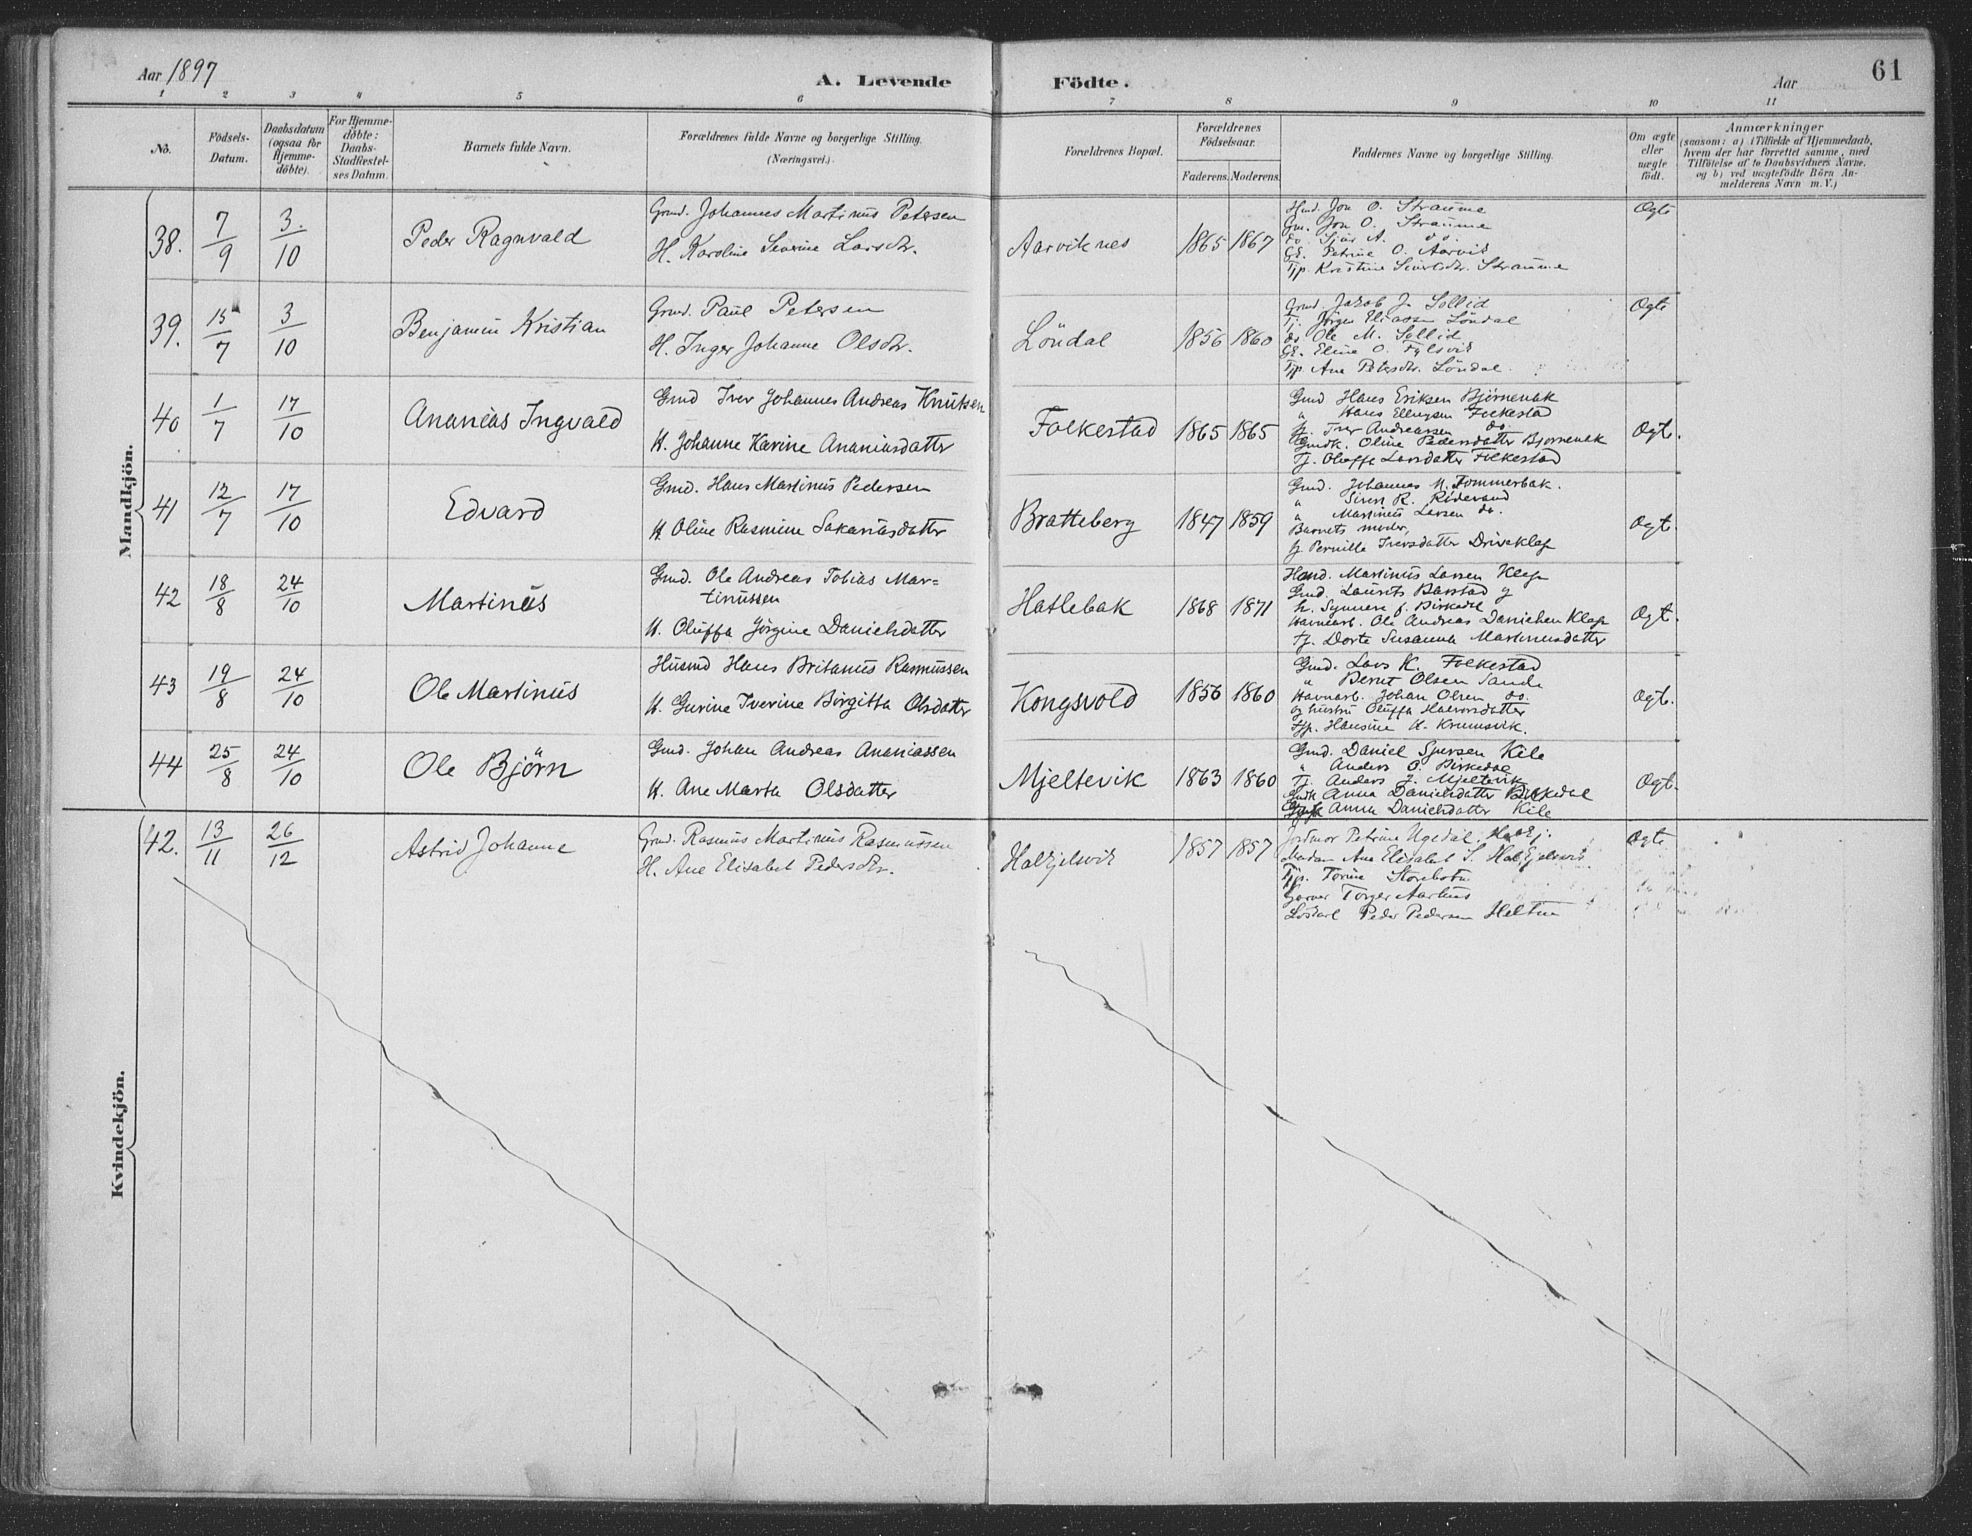 Aar 1897
A. Levende Födte.
Aar
61
1 2 3 4 5 6 7 8 9 10 11
No.
Födsels-Datum.
Daabsdatum (ogsaa for Hjemme-döbte).
For Hjemme-döbte: Daabs-Stadfæstel-ses Datum.
Barnets fulde Navn.
Forældrenes fulde Navne og borgerlige Stilling.
(Næringsvei.)
Forældrenes Bopæl.
Forældrenes Födselsaar.
Faderens. Moderens.
Faddernes Navne og borgerlige Stilling.
Om ægte eller uægte födt.
Anmærkninger
(saasom: a) i Tilfælde af Hjemmedaab,
hvem der har forrettet samme, med
Tilföielse af to Daabsvidners Navne,
og b) ved uægtefödte Börn An-
melderens Navn m. V.)
Mandkjön.
38. 7/9 3./10 Peder Ragnvald
Grmd. Johannes Martinus Petersen
H. Karoline Severine Larsdtr.
Aarviknes 1865 1867
Jon O. Straume
Gm. Jon O. Straume
do Sjur A. do.
Ge. Petrine O. Aarvik
Tjp. Kristine Straume
Ægte
39. 15/7 3/10 Benjamin Kristian
Grmd. Paul Petersen
H. Inger Johanne Olsdtr.
Löndal 1856 1860
Grmd. Jakob J. Sollid
Tj. Jörgen Eliassen Löndal
do Ole M. Sollid
Ge. Eline O.
Tjp Ane Petersdtr. Löndal.
Ægte
40 1/7 17/10 Ananias Ingvald
Gmd Iver Johannes Andreas Knutsen
H. Johanne Karine Ananiasdatter
Folkestad 1865 1865
Gmd Hans Eriksen Bjørnebak
" Hans Ellingsen Folkestad
Iver Andreassen do.
Gmdk. Oline Pedersdatter Bjørnebak
Tj. Oluffa Larsdatter Folkestad
Ægt.
41 12/7 17/10 Edvard
Gmd. Hans Martinus Pedersen
H Oline Rasmine Sakariasdatter
Bratteberg 1847 1859
Gmd. Johannes M.
" Siver R.
" Martinus Larsen do.
Barnets moder,
Pernille Iversdatter Driveklep
Ægt.
42 18/8 24/10 Martinus
Gmd. Ole Andreas Tobias Mar=
tinussen
H. Oluffa Jörgine Danielsdatter
Hatlebak 1868 1871
Martinus Larsen Klep
Gmd. Laurits Barstad og
h. Synneve J. Birkedal
Havnearb. Ole Andreas Danielsen Klep
Tj. Dorte Susanna Martinusdatter
Ægt.
43 19/8 24/10 Ole Martinus
Husmd Hans Britanus Rasmussen
H. Gurine Iverine Birgitta Olsdatter
Kongsvold 1856 1860
Gmd. Lars K. Folkestad
" Bernt Olsen Sande
Havnearb. Johan Olsen do.
og hustru Oluffa Halvorsdatter
Tjp. Hansine A. Krumsvik.
Ægt.
44 25/8 24/10 Ole Bjørn
Gmd. Johan Andreas Ananiassen
H. Ane Marta Olsdatter
Mjeltevik 1863 1860
Gmd. Daniel Sjursen Kile
" Anders O. Birkedal
Tj. Anders J. Mjeltevik
Gmdk Anna Danielsdatter Birkedal
Anna Danielsdatter Kile
Ægt.
Kvindekjön.
42. 13/11 26/12 Astrid Johanne
Grmd. Rasmus Martinus Rasmussen
H. Ane Elisabet Pedersdtr.
Halkjelsvik 1857 1857
Jordmor Petrine Ugedal,
Madam Ane Elisabet S. Halkjelsvik
Tjp. Torine Storebotn
Garver Torger Aarhus
Löskarl Peder Pedersen Heltne
Ægte